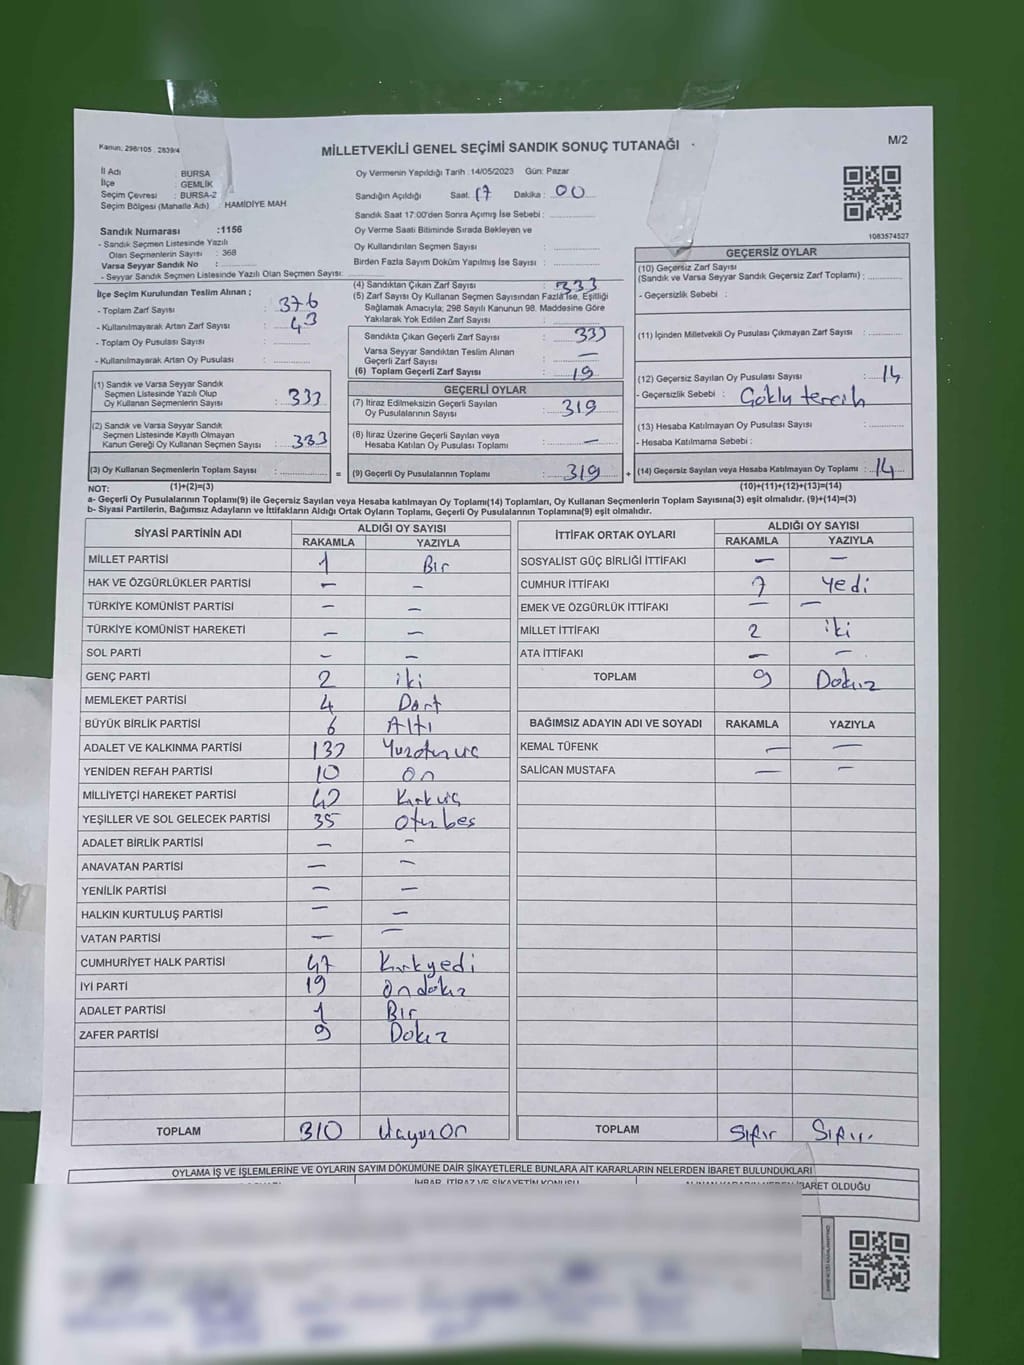 Kanun: 298/105 , 2839/4
MİLLETVEKİLİ GENEL SEÇİMİ SANDIK SONUÇ TUTANAĞI
M/2
İl Adı : BURSA
İlçe : GEMLİK
Seçim Çevresi : BURSA-2
Seçim Bölgesi (Mahalle Adı) : HAMİDİYE MAH
Sandık Numarası :1156
- Sandık Seçmen Listesinde Yazılı
Olan Seçmenlerin Sayısı : 368
Varsa Seyyar Sandık No :
- Seyyar Sandık Seçmen Listesinde Yazılı Olan Seçmen Sayısı:
Oy Vermenin Yapıldığı Tarih : 14/05/2023 Gün: Pazar
Sandığın Açıldığı Saat: 17 Dakika : 00
Sandık Saat 17:00'den Sonra Açımış İse Sebebi :
Oy Verme Saati Bitiminde Sırada Bekleyen ve
Oy Kullandırılan Seçmen Sayısı :
Birden Fazla Sayım Döküm Yapılmış İse Sayısı :
1083574527
İlçe Seçim Kurulundan Teslim Alınan ;
- Toplam Zarf Sayısı : 376
- Kullanılmayarak Artan Zarf Sayısı : 43
- Toplam Oy Pusulası Sayısı :
- Kullanılmayarak Artan Oy Pusulası :
(1) Sandık ve Varsa Seyyar Sandık
Seçmen Listesinde Yazılı Olup
Oy Kullanan Seçmenlerin Sayısı : 333
(2) Sandık ve Varsa Seyyar Sandık
Seçmen Listesinde Kayıtlı Olmayan
Kanun Gereği Oy Kullanan Seçmen Sayısı : 333
(3) Oy Kullanan Seçmenlerin Toplam Sayısı :
(1)+(2)=(3)
(4) Sandıktan Çıkan Zarf Sayısı : 333
(5) Zarf Sayısı Oy Kullanan Seçmen Sayısından Fazla İse, Eşitliği
Sağlamak Amacıyla; 298 Sayılı Kanunun 98. Maddesine Göre
Yakılarak Yok Edilen Zarf Sayısı :
Sandıkta Çıkan Geçerli Zarf Sayısı : 333
Varsa Seyyar Sandıktan Teslim Alınan
Geçerli Zarf Sayısı : —
(6) Toplam Geçerli Zarf Sayısı : 19
GEÇERLİ OYLAR
(7) İtiraz Edilmeksizin Geçerli Sayılan
Oy Pusulalarının Sayısı : 319
(8) İtiraz Üzerine Geçerli Sayılan veya
Hesaba Katılan Oy Pusulaları Toplamı : —
= (9) Geçerli Oy Pusulalarının Toplamı : 319 +
GEÇERSİZ OYLAR
(10) Geçersiz Zarf Sayısı
(Sandık ve Varsa Seyyar Sandık Geçersiz Zarf Toplamı) :
- Geçersizlik Sebebi :
(11) İçinden Milletvekili Oy Pusulası Çıkmayan Zarf Sayısı :
(12) Geçersiz Sayılan Oy Pusulası Sayısı : 14
- Geçersizlik Sebebi : Çoklu tercih
(13) Hesaba Katılmayan Oy Pusulası Sayısı :
- Hesaba Katılmama Sebebi :
(14) Geçersiz Sayılan veya Hesaba Katılmayan Oy Toplamı : 14
(10)+(11)+(12)+(13)=(14)
NOT:
a- Geçerli Oy Pusulalarının Toplamı(9) ile Geçersiz Sayılan veya Hesaba katılmayan Oy Toplamı(14) Toplamları, Oy Kullanan Seçmenlerin Toplam Sayısına(3) eşit olmalıdır. (9)+(14)=(3)
b- Siyasi Partilerin, Bağımsız Adayların ve İttifakların Aldığı Ortak Oyların Toplamı, Geçerli Oy Pusulalarının Toplamına(9) eşit olmalıdır.
SİYASİ PARTİNİN ADI ALDIĞI OY SAYISI
RAKAMLA YAZIYLA
MİLLET PARTİSİ 1 Bir
HAK VE ÖZGÜRLÜKLER PARTİSİ — —
TÜRKİYE KOMÜNİST PARTİSİ — —
TÜRKİYE KOMÜNİST HAREKETİ — —
SOL PARTİ — —
GENÇ PARTİ 2 iki
MEMLEKET PARTİSİ 4 Dört
BÜYÜK BİRLİK PARTİSİ 6 Altı
ADALET VE KALKINMA PARTİSİ
YENİDEN REFAH PARTİSİ 10 on
MİLLİYETÇİ HAREKET PARTİSİ
YEŞİLLER VE SOL GELECEK PARTİSİ 35 otuzbeş
ADALET BİRLİK PARTİSİ — —
ANAVATAN PARTİSİ — —
YENİLİK PARTİSİ — —
HALKIN KURTULUŞ PARTİSİ — —
VATAN PARTİSİ — —
CUMHURİYET HALK PARTİSİ 47 Kırkyedi
İYİ PARTİ 19 ondokuz
ADALET PARTİSİ 1 Bir
ZAFER PARTİSİ 9 Dokuz
TOPLAM 310 Üçyüzon
İTTİFAK ORTAK OYLARI ALDIĞI OY SAYISI
RAKAMLA YAZIYLA
SOSYALİST GÜÇ BİRLİĞİ İTTİFAKI — —
CUMHUR İTTİFAKI 7 Yedi
EMEK VE ÖZGÜRLÜK İTTİFAKI — —
MİLLET İTTİFAKI 2 iki
ATA İTTİFAKI — —
TOPLAM 9 Dokuz
BAĞIMSIZ ADAYIN ADI VE SOYADI RAKAMLA YAZIYLA
KEMAL TÜFENK — —
SALİCAN MUSTAFA — —
TOPLAM Sıfır Sıfır
OYLAMA İŞ VE İŞLEMLERİNE VE OYLARIN SAYIM DÖKÜMÜNE DAİR ŞİKAYETLERLE BUNLARA AİT KARARLARIN NELERDEN İBARET BULUNDUKLARI
İHBAR, İTİRAZ VE ŞİKAYETİN KONUSU
İBARET OLDUĞU